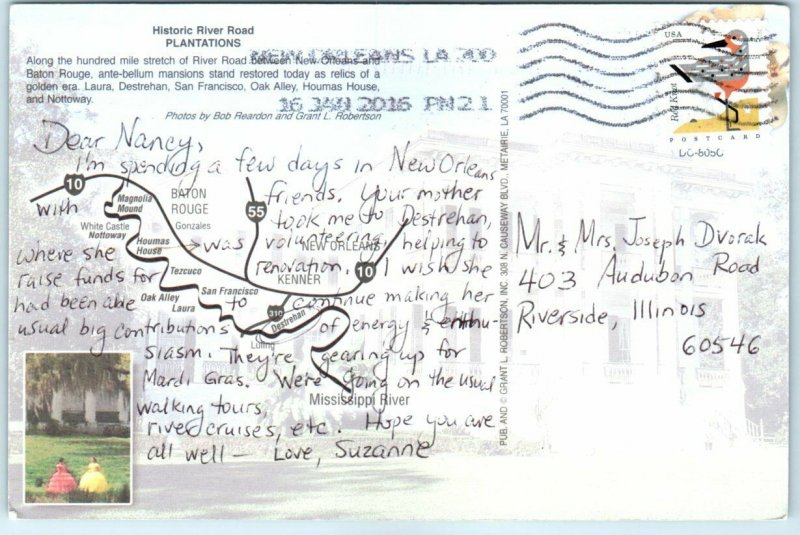 Historic River Road
PLANTATIONS
Along the hundred mile stretch of River Road between New Orleans and
Baton Rouge, ante-bellum mansions stand restored today as relics of a
golden era. Laura, Destrehan, San Francisco, Oak Alley, Houmas House,
and Nottoway.
Photos by Bob Reardon and Grant L. Robertson
NEW ORLEANS LA 700
16 JAN 2016 PM 2 L
USA
Red Knot
POSTCARD
Dear Nancy,
I'm spending a few days in New Orleans
with friends. Your mother
took me to Destrehan,
where she was volunteering, helping to
raise funds for renovation. I wish she
had been able to continue making her
usual big contributions of energy & enthu-
siasm. They're gearing up for
Mardi Gras. We're going on the usual
walking tours,
river cruises, etc. Hope you are
all well — Love, Suzanne
Mr. & Mrs. Joseph Dvorak
403 Audubon Road
Riverside, Illinois
60546
10
Magnolia
Mound
BATON
ROUGE
55
White Castle
Nottoway
Gonzales
Houmas
House
NEW ORLEANS
Tezcuco
KENNER
10
Oak Alley
San Francisco
Laura
310
Destrehan
Luling
Mississippi River
PUB. AND © GRANT L. ROBERTSON, INC. 308 N. CAUSEWAY BLVD., METAIRIE, LA 70001